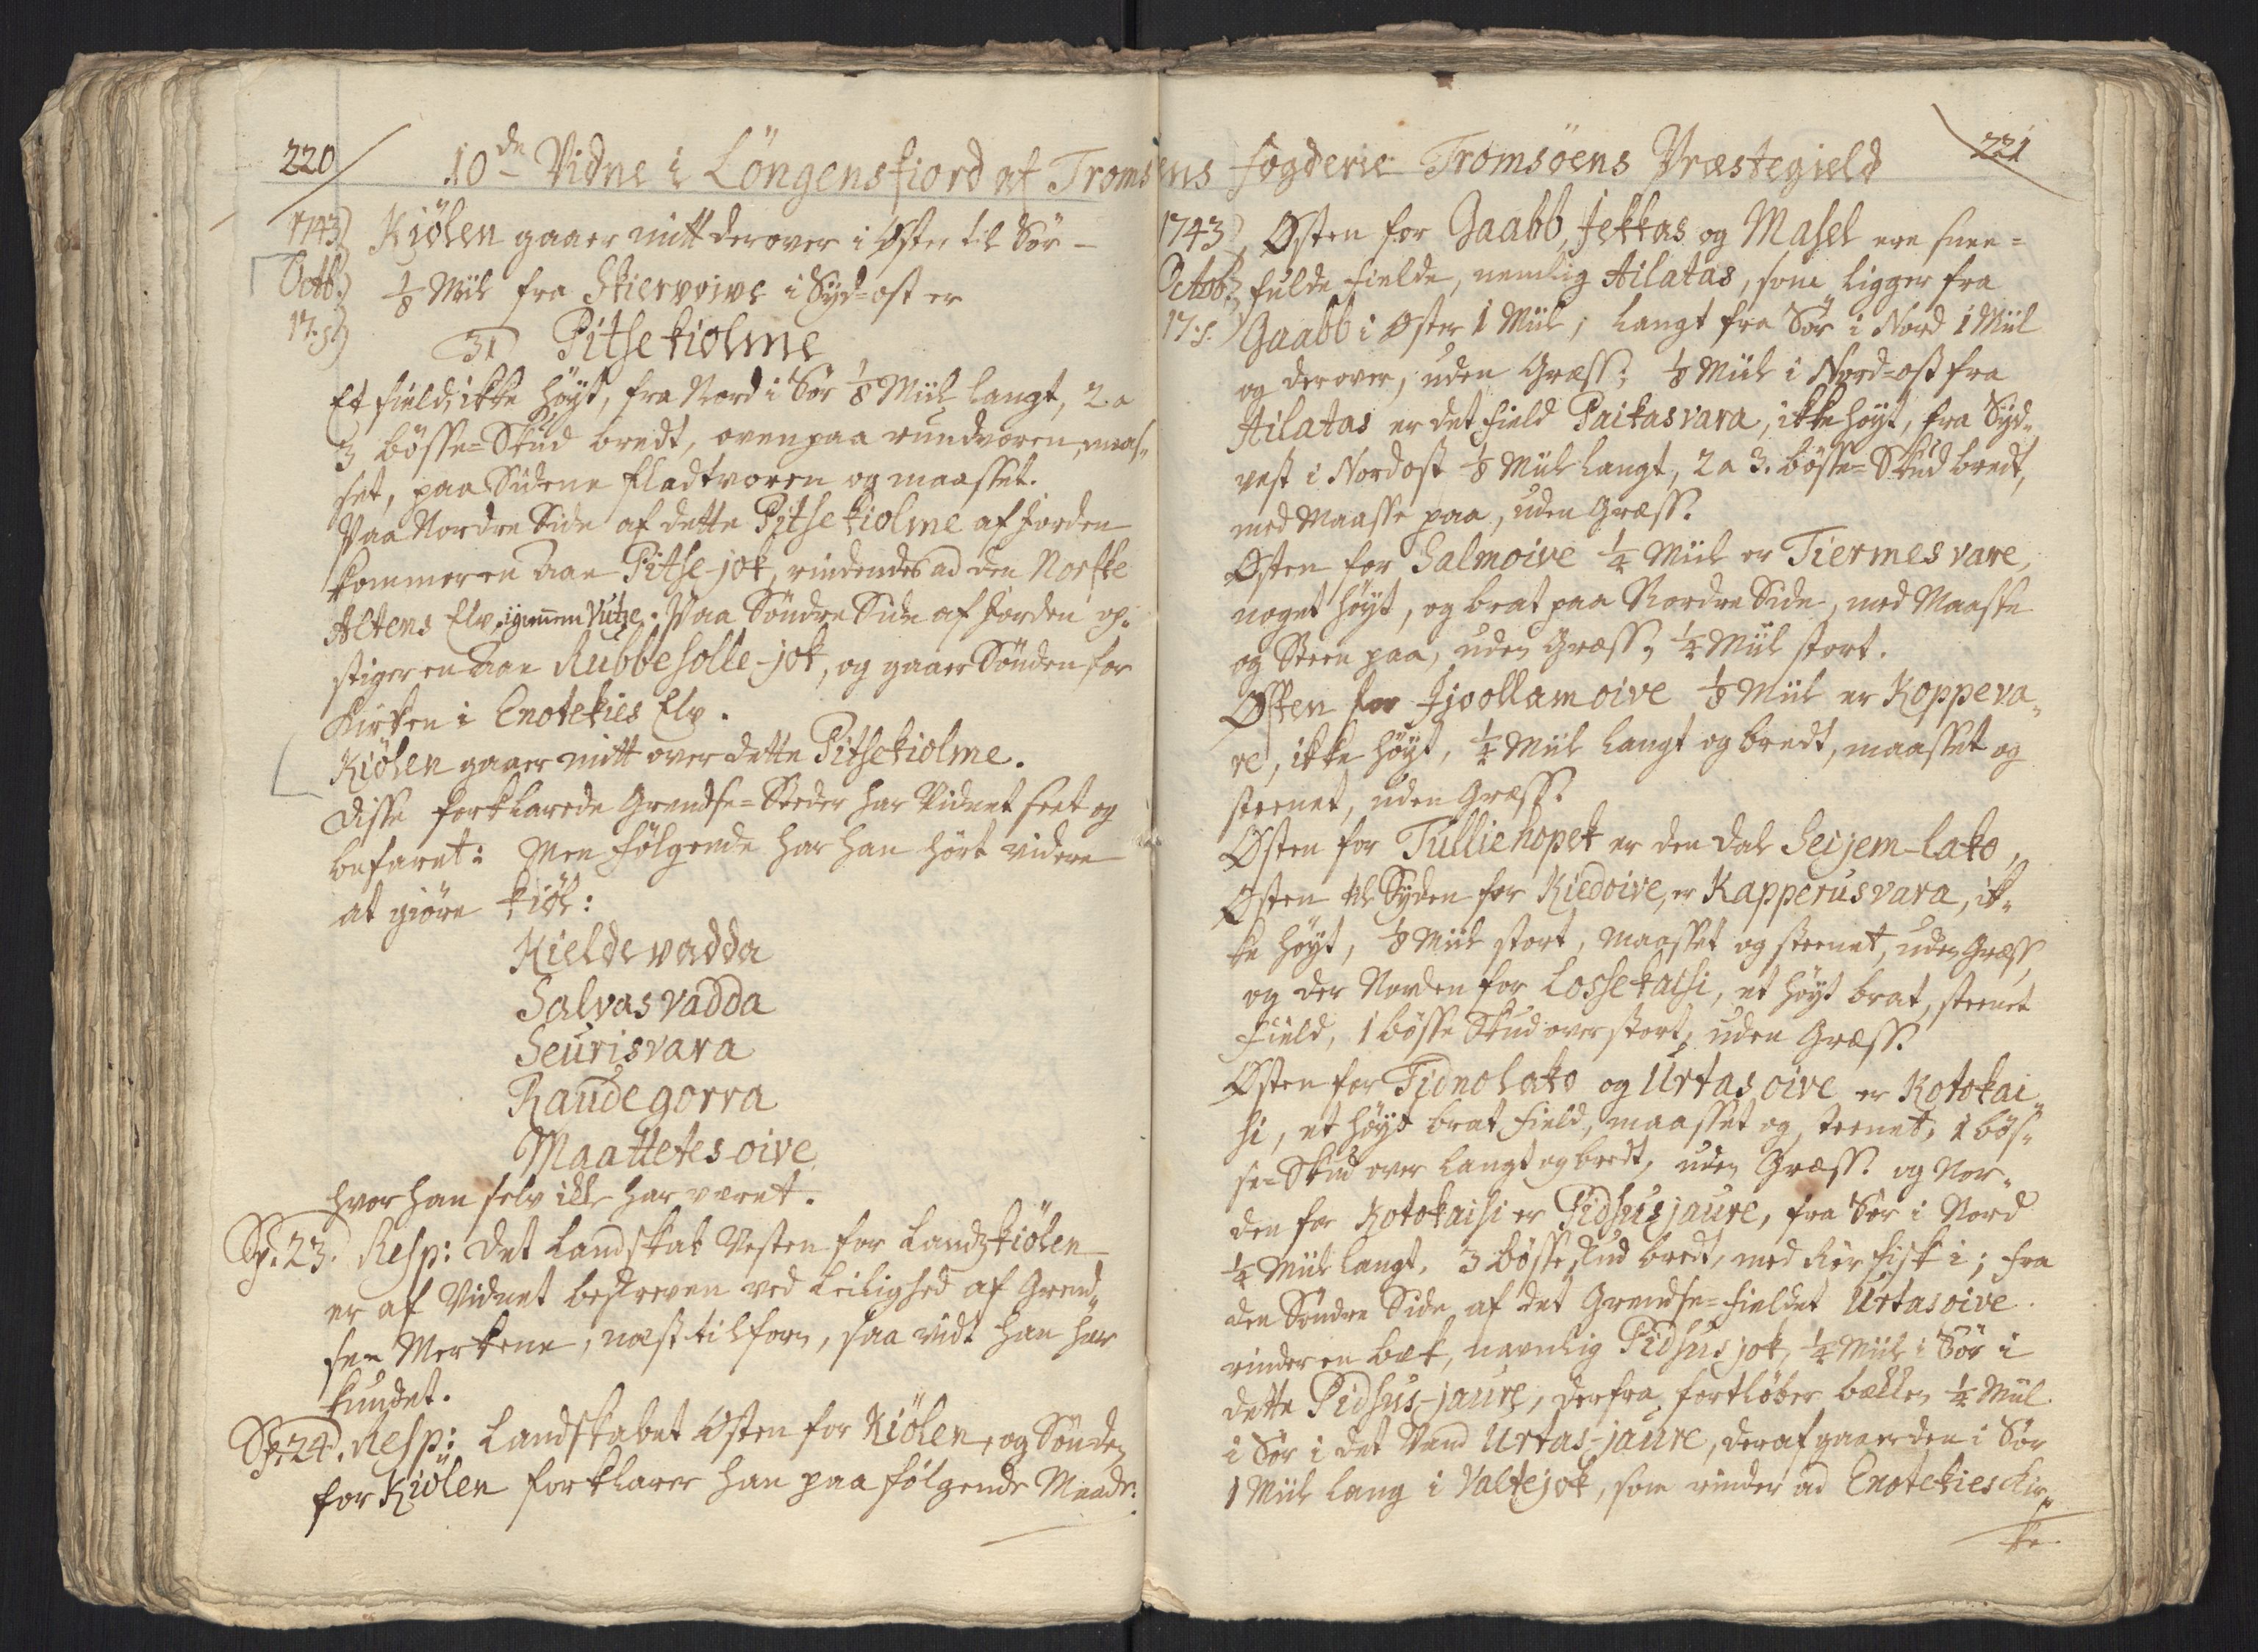 220
10de Vidne i Löngensfiord af Troms
1743)
Octb:)
17. s)
Kiölen gaaer mitt derover i Øster til Sör –
1/8 Miil fra Skiervoive i Syd-ost er
31 Pitsekiolme
Et field, ikke høyt, fra Nord i Sör 1/8 Miil langt, 2 a
3 bösse-Skud bredt, ovenpaa rundvoren, maas„
set, paa Sidene fladtvoren og maasset.
Paa Nordre Side af dette Pitsekiolme af Jorden
kommer en Aae Pitse-jok, rindendes ad den Norske
Altens Elv, igiennem Vutze. Paa Söndre Side af Jorden op„
stiger en Aae Rubbesolle-jok, og gaaer Sönden for
Kirken i Enotekies Elv.
Kiölen gaaer mitt over dette Pitsekiolme.
Disse forklarede Grendse-Steder har Vidnet seet og
befaret: Men følgende har han hört videre
at giöre kiöl:
Kieldevadda
Salvasvadda
Seurisvara
Raudegorra
Maattetes-oive
hvor han selv ikke har været.
Sp. 23. Resp: Det Landskab Vesten for Landzkiölen
er af Vidnet beskreven ved Leilighed af Grend„
se-Merkene, næst tilforn, saa vidt han har
kundet.
Sp. 24. Resp: Landskabet Østen for Kiölen, og Sönden
for Kiölen forklarer han paa følgende Maade:
ens Fogderie Tromsöens Præstegield
221
1743)
Octob:)
17. s.
Østen for Gaabb, Jekkas og Masel ere snee=
fulde fielde, nemlig Ailatas, som ligger fra
Gaabb i Øster 1 Miil; langt fra Sör i Nord 1 Miil
og derover, uden Græss; 1/8 Miil i Nord-ost fra
Ailatas er det field Paikasvara, ikke høyt, fra Syd„
vest i Nordost 1/8 Miil langt, 2 a 3. bösse-Skud bredt,
med Maasse paa, uden Græss.
Østen for Salmoive 1/4 Miil er Tiermesvare,
noget høyt, og brat paa Nordre Side, med Maasse
og Steen paa, uden Græss, 1/4 Miil stort.
Østen for Jjvollamoive 1/8 Miil er Koppeva„
re, ikke høyt, 1/4 Miil langt og bredt, maasset og
steenet, uden Græss.
Østen for Tulliehopek er den Dal Seijem-lako,
Østen til Syden for Kiedoive, er Kapperusvara, ik„
ke høyt, 1/8 Miil stort, maasset og steenet, uden Græss,
og der Norden for Lossekaisi, et høyt brat, steenet
Field, 1 bösse Skud over stort, uden Græss.
Østen for Tidnolako og Urtasoive er Kotokai„
si, et høyt brat Field, maasset og steenet, 1 bös„
se-Skud over langt og bredt, uden Græss. og Nor„
den for Kotokaisi er Pidsusjaure, fra Sör i Nord
1/4 Miil langt, 3 bösse Skud bredt, med Rör fisk i; fra
den Söndre Side af det Grendse-fieldet Urtasoive
rinder en bæk, navnlig Pidsusjok, 1/4 Miil i Sör i
dette Pidsus-jaure, derfra fortløber bækken 1/4 Miil
i Sör i det Vand Urtas-jaure, deraf gaaer den i Sör
1 Miil lang i Valtejok, som rinder ad Enotekies Kir„
ke